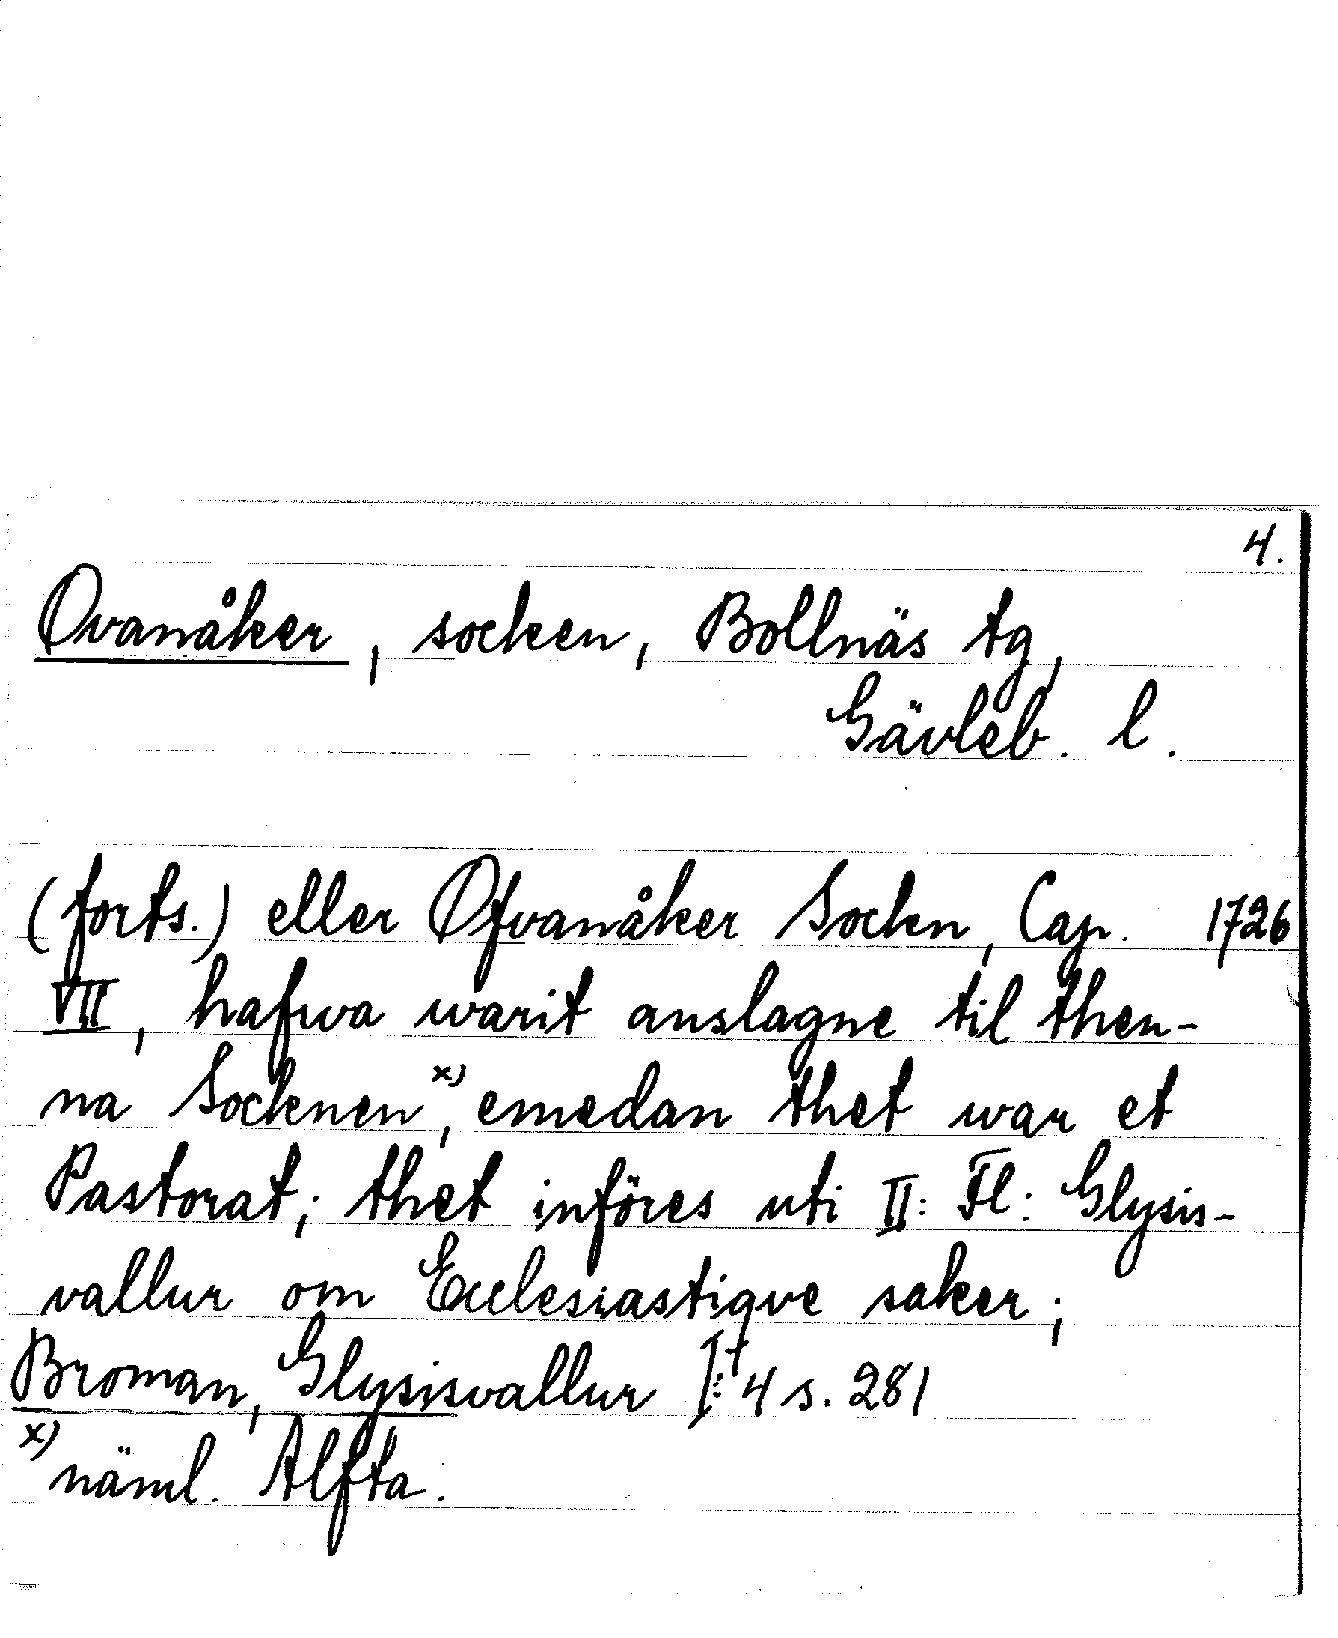 4.
Ovanåker, socken, Bollnäs tg,
Gävleb. l.
(forts.) eller Ofvanåker Sockn, Cap. 1726
VII, hafwa warit anslagne til then-
na Socknen x), emedan thet war et
Pastorat; thet införes uti II: Fl: Glysis-
vallur om Ecclesiastiqve saker;
Broman, Glysisvallur I: 4 s. 281
x) näml. Alfta.